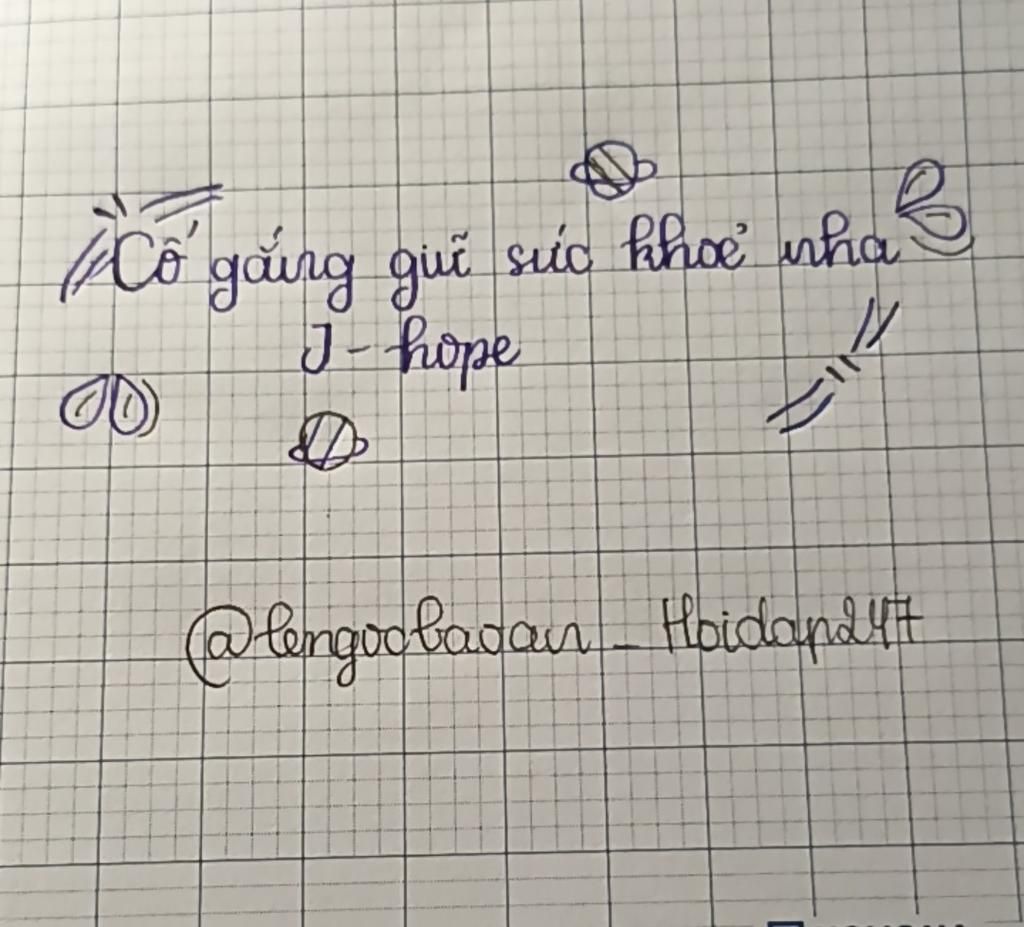 Cố gắng giữ sức khoẻ nha
J - hope
@lengocbaoan _ Hoidap247